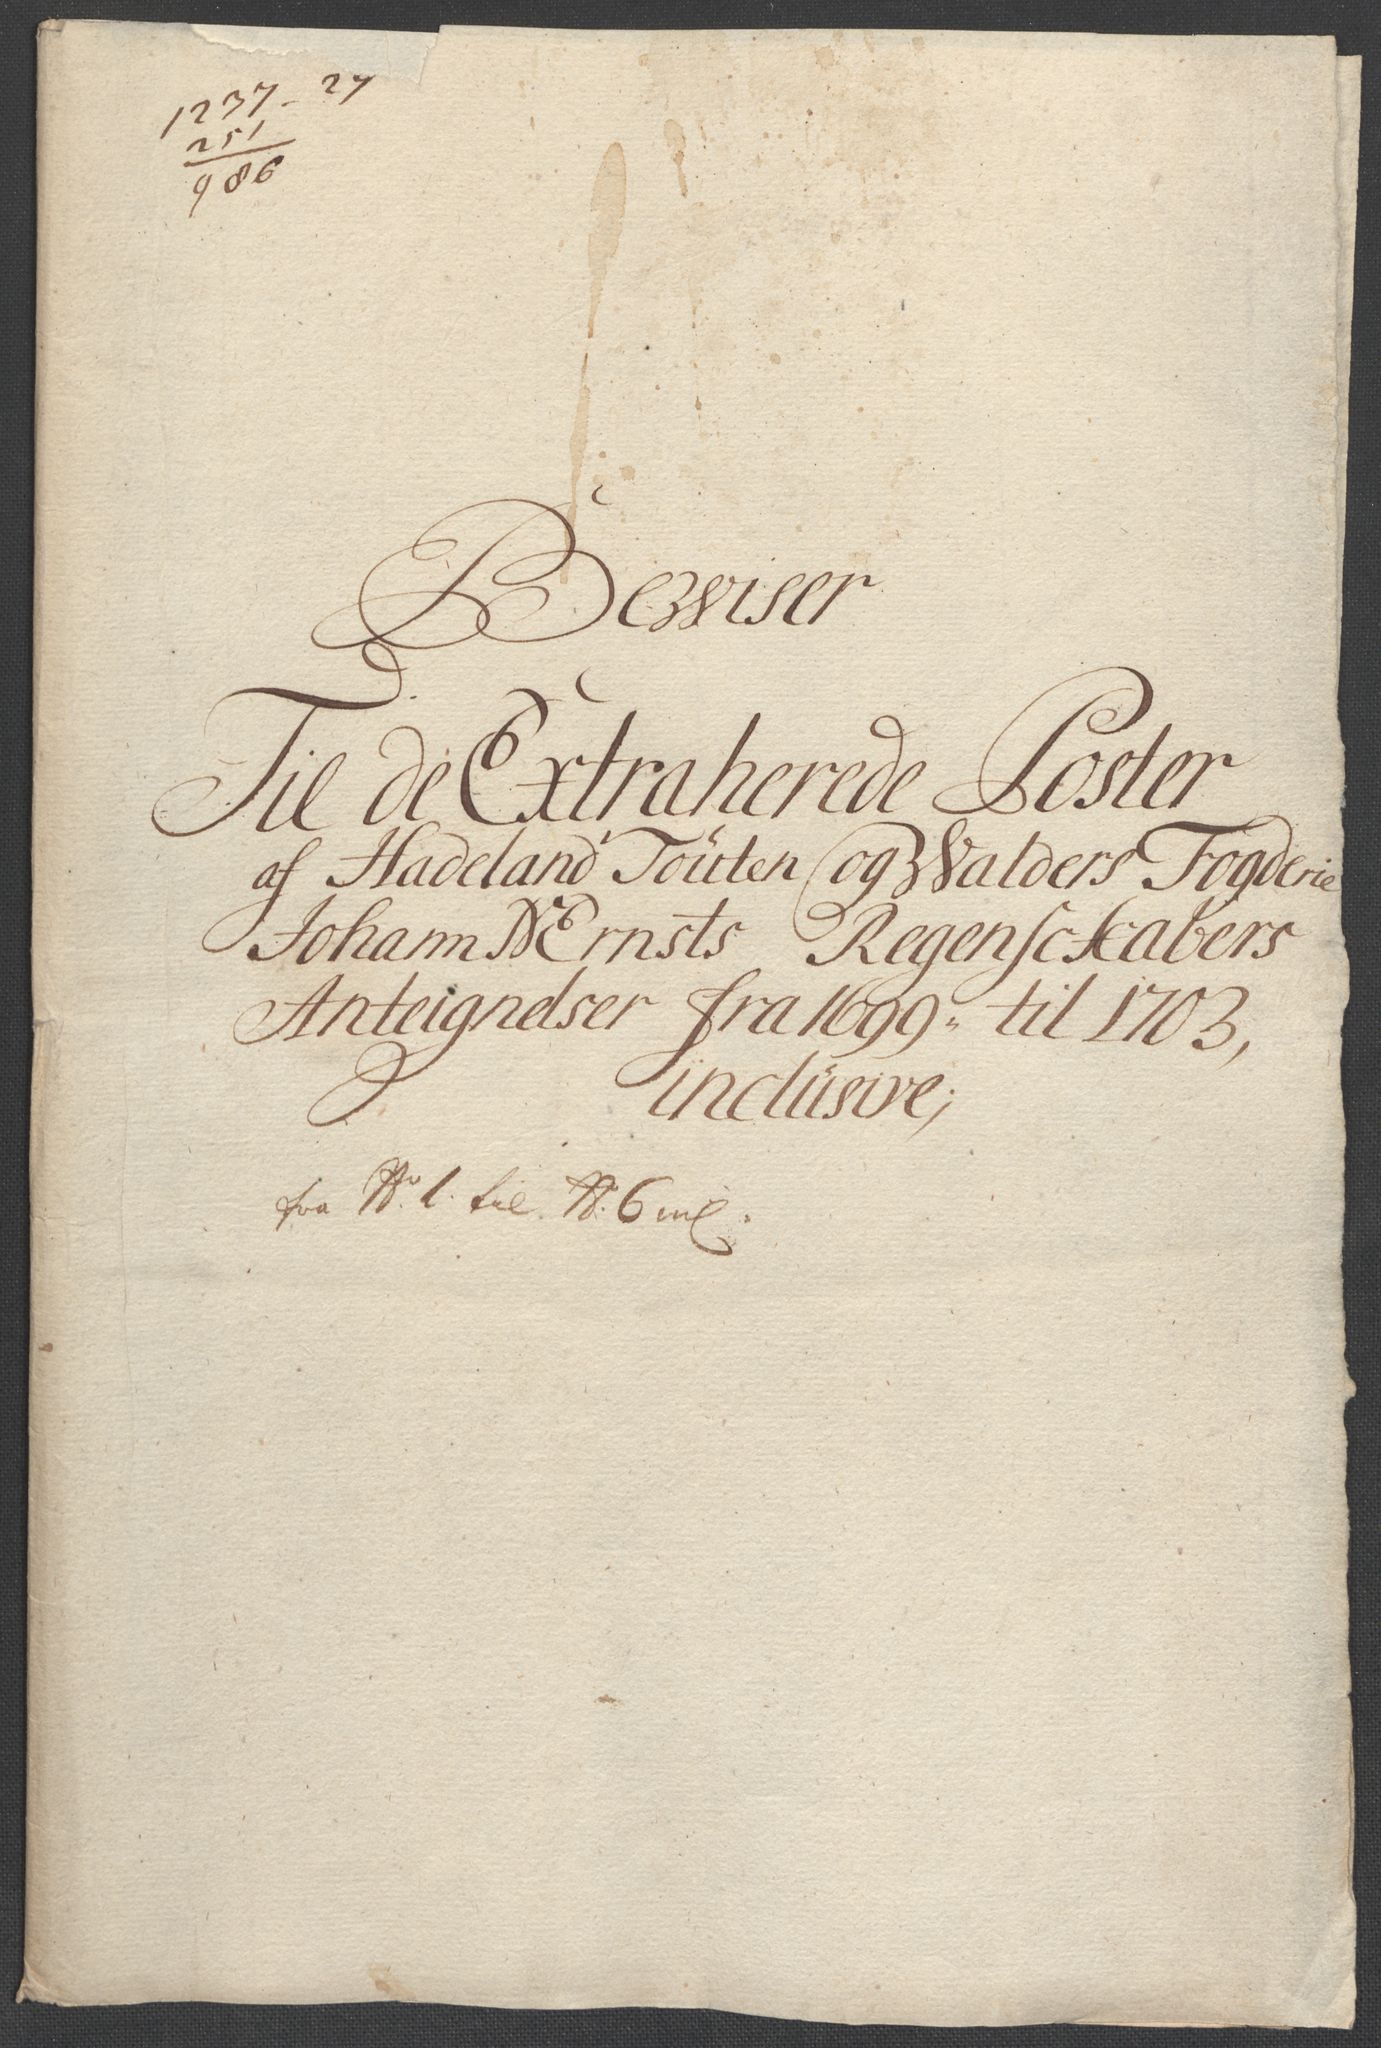 1237 - 27
251
986
Bewiser
Til de Extraherede Poster
af Hadeland Toüten og Walders Fogderie
Johann Ernsts Regenschabers
Anteignelser fra 1699 til 1703,
inclüsive;
fra No. 1. til No. 6 incl.